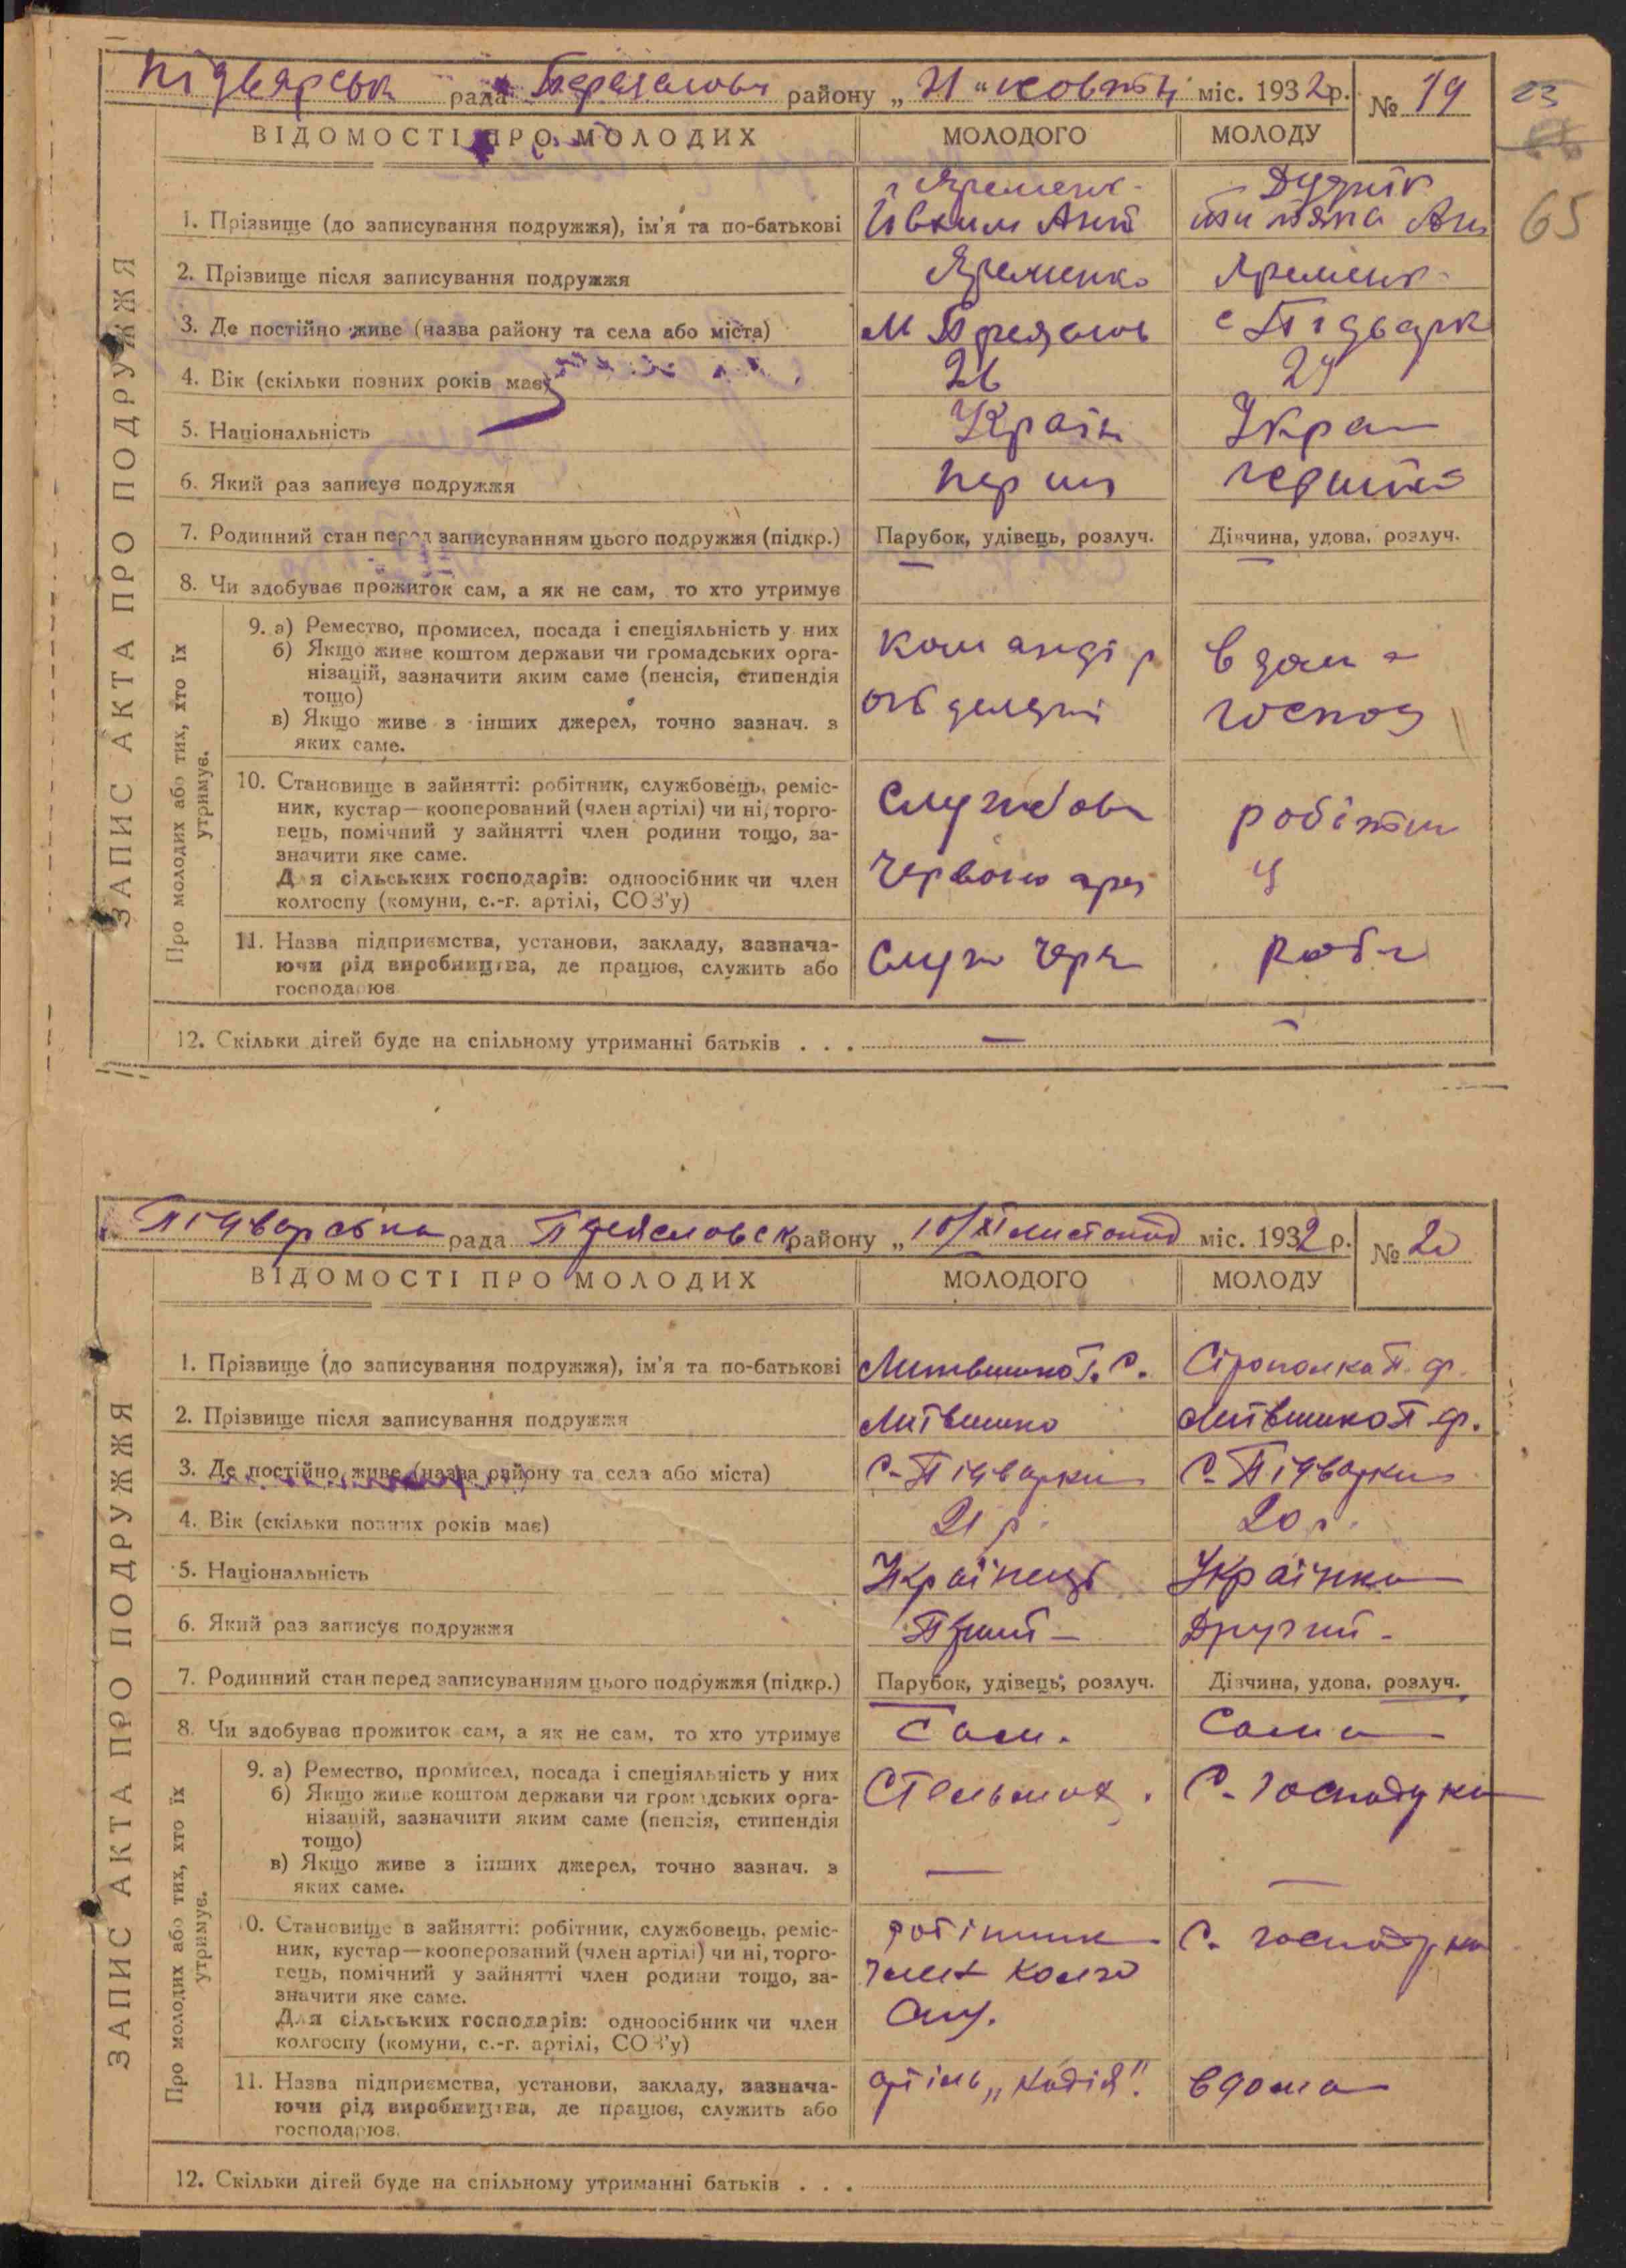 Підварськ рада Переяслов району „ 21 “ жовтн міс. 1932 р. № 19
23
ВІДОМОСТІ ПРО МОЛОДИХ МОЛОДОГО МОЛОДУ
65
ЗАПИС АКТА ПРО ПОДРУЖЖЯ
Яременк Дудник
1. Прізвище (до записування подружжя), ім'я та по-батькові Ант
2. Прізвище після записування подружжя Яременко Яременк
3. Де постійно живе (назва району та села або міста) М Переяслов с Підварк
4. Вік (скільки повних років має) 26 24
5. Національність Україн Укра
6. Який раз записує подружжя перши перший
7. Родинний стан перед записуванням цього подружжя (підкр.) Парубок, удівець, розлуч. Дівчина, удова, розлуч.
8. Чи здобуває прожиток сам, а як не сам, то хто утримує
Про молодих або тих, хто їх утримує.
9. а) Ремество, промисел, посада і спеціяльність у них
б) Якщо живе коштом держави чи громадських орга- командір в дом
нізацій, зазначити яким саме (пенсія, стипендія
тощо)
в) Якщо живе з інших джерел, точно зазнач. з господ
яких саме.
10. Становище в зайнятті: робітник, службовець, реміс-
ник, кустар—кооперований (член артілі) чи ні, торго- службов робітни
вець, помічний у зайнятті член родини тощо, за-
значити яке саме.
Для сільських господарів: одноосібник чи член ц
колгоспу (комуни, с.-г. артілі, СОЗ'у)
11. Назва підприємства, установи, закладу, зазнача-
ючи рід виробництва, де працює, служить або служ черв робі
господарює
12. Скільки дітей буде на спільному утриманні батьків . . . — —
Підварська рада Переясловськ району „ 10/XI листопад міс. 1932 р. № 20
ВІДОМОСТІ ПРО МОЛОДИХ МОЛОДОГО МОЛОДУ
ЗАПИС АКТА ПРО ПОДРУЖЖЯ
1. Прізвище (до записування подружжя), ім'я та по-батькові Литвиненко Г. С. Сірополка П. Ф.
2. Прізвище після записування подружжя Литвиненко Литвиненко П. Ф.
3. Де постійно живе (назва району та села або міста) С. Підварки С. Підварки
4. Вік (скільки повних років має) 21 р. 20 р.
5. Національність Українець Українка
6. Який раз записує подружжя Перший — Другий —
7. Родинний стан перед записуванням цього подружжя (підкр.) Парубок, удівець, розлуч. Дівчина, удова, розлуч.
8. Чи здобуває прожиток сам, а як не сам, то хто утримує Сам. Сама
Про молодих або тих, хто їх утримує.
9. а) Ремество, промисел, посада і спеціяльність у них
б) Якщо живе коштом держави чи громадських орга- Стельмах. С. Господарка
нізацій, зазначити яким саме (пенсія, стипендія
тощо)
в) Якщо живе з інших джерел, точно зазнач. з — —
яких саме.
10. Становище в зайнятті: робітник, службовець, реміс- робітник С. господарка
ник, кустар—кооперований (член артілі) чи ні, торго-
вець, помічний у зайнятті член родини тощо, за- член колго
значити яке саме.
Для сільських господарів: одноосібник чи член спу.
колгоспу (комуни, с.-г. артілі, СОЗ'у)
11. Назва підприємства, установи, закладу, зазнача- артіль „Надія“. вдома
ючи рід виробництва, де працює, служить або
господарює.
12. Скільки дітей буде на спільному утриманні батьків . . .